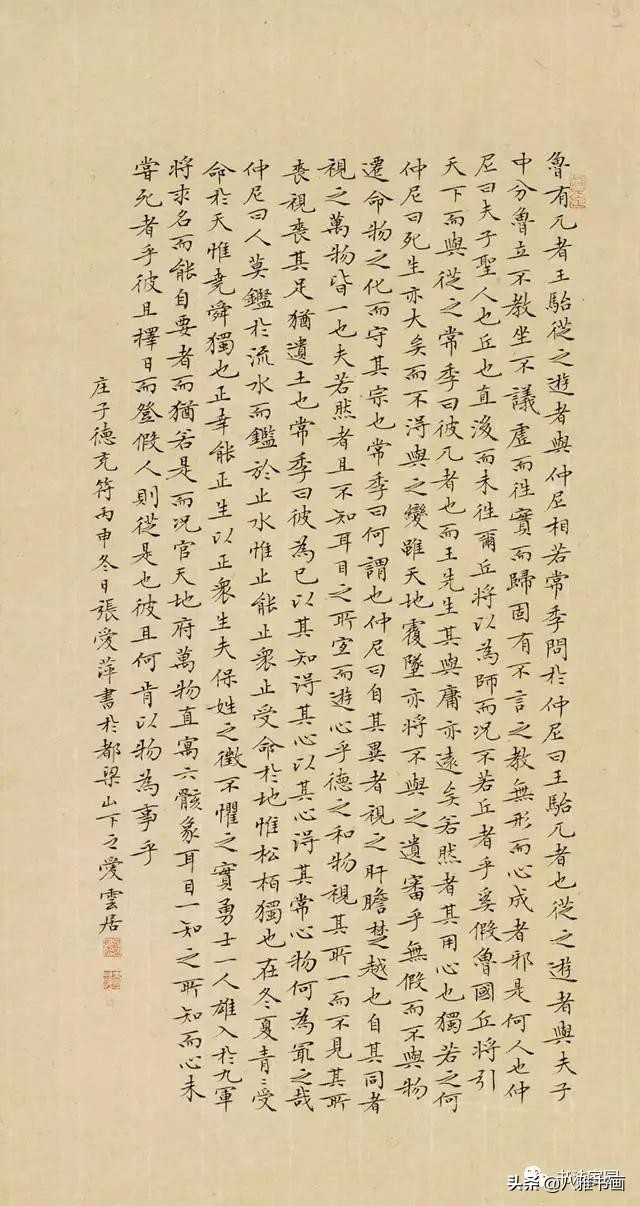 魯有兀者王駘從之遊者與仲尼相若常季問於仲尼曰王駘兀者也從之遊者與夫子
中分魯立不教坐不議虛而往實而歸固有不言之教無形而心成者邪是何人也仲
尼曰夫子聖人也丘也直後而未往爾丘將以為師而況不若丘者乎奚假魯國丘將引
天下而與從之常季曰彼兀者也而王先生其與庸亦遠矣若然者其用心也獨若之何
仲尼曰死生亦大矣而不得與之變雖天地覆墜亦將不與之遺審乎無假而不與物
遷命物之化而守其宗也常季曰何謂也仲尼曰自其異者視之肝膽楚越也自其同者
視之萬物皆一也夫若然者且不知耳目之所宜而遊心乎德之和物視其所一而不見其所
喪視喪其足猶遺土也常季曰彼為已以其知得其心以其心得其常心物何為最之哉
仲尼曰人莫鑑於流水而鑑於止水惟止能止衆止受命於地惟松柏獨也在冬夏青〻受
命於天惟堯舜獨也正幸能正生以正衆生夫保姓之徵不懼之實勇士一人雄入於九軍
將求名而能自要者而猶若是而況官天地府萬物直寓六骸象耳目一知之所知而心未
嘗死者乎彼且擇日而登假人則從是也彼且何肯以物為事乎
庄子德充符丙申冬日張愛萍書於都梁山下之愛雲居
头条@八雅书画